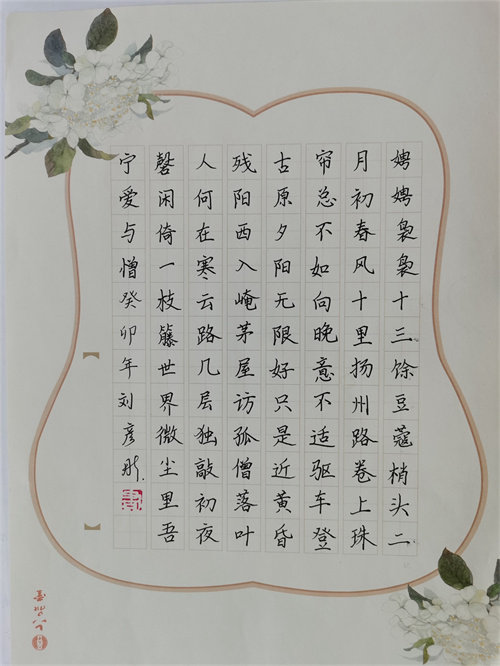 娉娉袅袅十三馀豆蔻梢头二
月初春风十里扬州路卷上珠
帘总不如向晚意不适驱车登
古原夕阳无限好只是近黄昏
残阳西入崦茅屋访孤僧落叶
人何在寒云路几层独敲初夜
磬闲倚一枝藤世界微尘里吾
宁爱与憎癸卯年刘彦彤